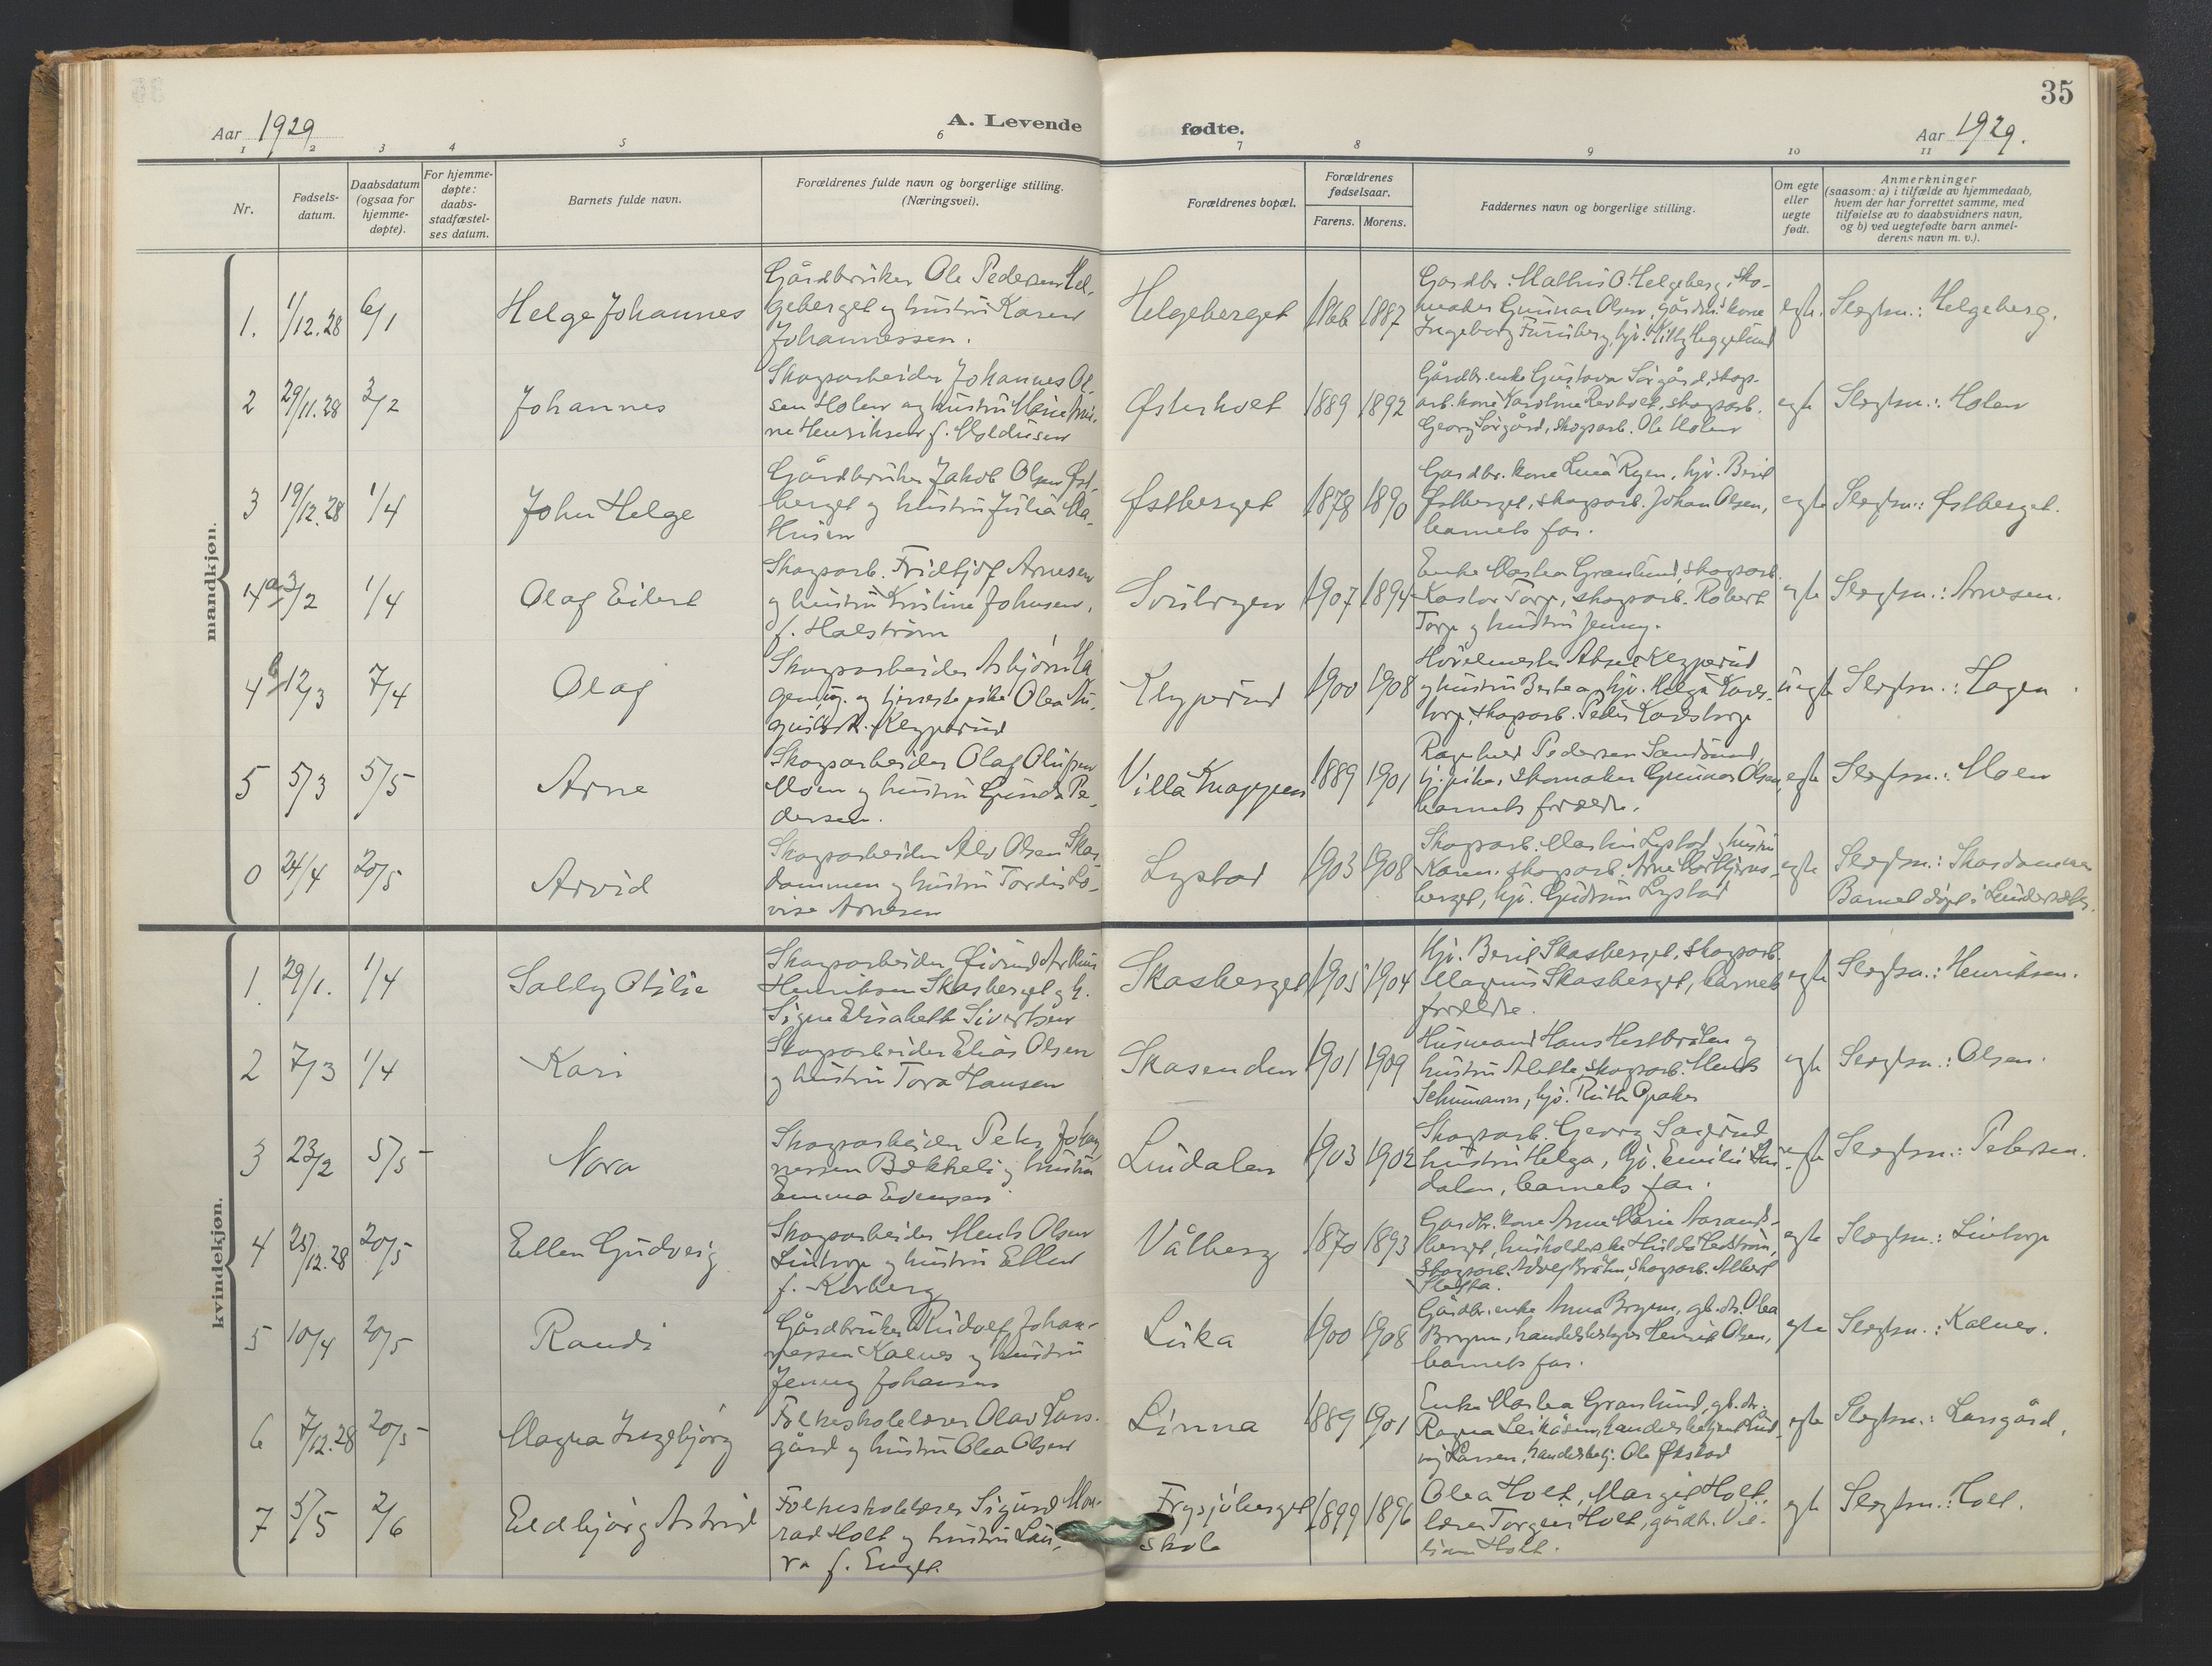 35
Aar 1929
A. Levende
fødte.
Aar 1929.
1 2 3 4 5 6 7 8 9 10 11
Nr.
Fødsels-
datum.
Daabsdatum
(ogsaa for
hjemme-
døpte).
For hjemme-
døpte:
daabs-
stadfæstel-
ses datum.
Barnets fulde navn.
Forældrenes fulde navn og borgerlige stilling.
(Næringsvei).
Forældrenes bopæl.
Forældrenes
fødselsaar.
Farens. Morens.
Faddernes navn og borgerlige stilling.
Om egte
eller
uegte
født.
Anmerkninger
(saasom: a) i tilfælde av hjemmedaab,
hvem der har forrettet samme, med
tilføielse av to daabsvidners navn,
og b) ved uegtefødte barn anmel-
derens navn m. v.).
mandkjøn.
1. 1/12.28 6/1
Helge Johannes
Gårdbruker Ole Pedersen Hel-
geberget og hustru Karen
Johannessen.
Helgeberget
1866 1887
Gardbr. Mathis O. Helgeberg, sko-
maker Gunnar Olsen, gårdbr. kone
Ingeborg Furuberg, hjv.
egte.
Slegtsn.: Helgeberg.
2 29/11.28 3/2
Johannes
Skogsarbeider Johannes Ol-
sen Holen og hustru Marie
Henriksen f.
Østerholt
1889 1892
Gårdbr. enke Gustava Sørgård, skogs-
arb. kone Karoline Revholt, skogsarb.
Georg Sørgård, skogsarb. Ole Holen
egte
Slegtsn.: Holen
3 19/12.28 1/4
John Helge
Gårdbruker Jakob Olsen Øst-
berget og hustru Julia Ma-
Østberget
1878 1890
Gardbr. kone Ryen, hjv. Beril
Østberget, skogsarb. Johan Olsen,
barnets far.
egte
Slegtsn.: Østberget.
4 a 3/2 1/4
Olaf Eilert
Skogsarb. Fridtjof Arnesen
og hustru Kristine Johnsen,
f. Halstrøm
1907 1894
Enke Marta Granlund, skogsarb.
Kastor Torp, skogsarb. Robert
Torp og hustru Jenny.
egte
Slegtsn.: Arnesen.
4 b 12/3 7/4
Olaf
Skogsarbeider Asbjørn Ha
gen, ug. og tjenestepike Olea Au-
Klypperud
Klypperud
1900 1908
Aksel Klypperud
og hustru Berthea, hjv. Helga Karls-
torp, skogsarb. Peder Karlstorp
uegte
Slegtsn.: Hagen.
5 5/3 5/5
Arne
Skogsarbeider Olaf Olufsen
Moen og hustru Gunda Pe-
dersen.
Villa Knappen
1889 1901
Ragnhild Pedersen Sandsund,
tj. pike, skomaker Gunnar Olsen,
barnets forældre.
egte
Slegtsn.: Moen
0 24/4 20/5
Arvid
Skogsarbeider Alv Olsen Skas-
dammen og hustru Tordis Lo-
vise Arnesen
Lystad
1903 1908
Skogsarb. Martin Lystad, hustru
Karen, skogsarb. Arne
berget, hjv. Gudrun Lystad
egte
Slegtsn.: Skasdammen
Barnet døpt i
kvindekjøn.
1. 29/1. 1/4
Solly Otilie
Skogsarbeider Øivind Arthur
Henriksen Skasberget og h.
Signe Elisabeth Sivertsen
Skasberget
1905 1904
Hjv. Beril Skasberget, skogsarb.
Magnus Skasberget, barnets
forældre.
egte
Slegtsn.: Henriksen.
2 7/3 1/4
Kari
Skogsarbeider Elias Olsen
og hustru Tora Hansen
Skasenden
1901 1909
Husmand Hans Hestbråten og
hustru Alette, skogsarb. Ments
Schumann, hjv. Ruth Opaker
egte
Slegtsn.: Olsen.
3 23/2 5/5
Nora
Skogsarbeider Peter Johan-
nessen Bekkeli og hustru
Emma Evensen
Lindalen
1903 1902
Skogsarb. Georg Sagerud
hustru Helga, hjv. Emilie Lin-
dalen, barnets far.
egte
Slegtsn.: Petersen.
4 25/12.28 20/5
Ellen Gudveig
Skogsarbeider Ments Olsen
Lintorp og hustru Ellen
f. Korberg
Vålberg
1870 1893
Gardbr. kone Anne Marie Aarands-
berget, husholderske Hulda Hedstrøm,
skogsarb. Adolf Bråten, skogsarb. Albert
Sletta.
egte
Slegtsn.: Lintorp
5 10/4 20/5
Randi
Gårdbruker Rudolf Johan-
nessen Kalnes og hustru
Jenny Johansen
Luka
1900 1908
Gårdbr. enke Anna Brynn, gb. dr. Olea
Brynn, handelsbestyrer Henrik Olsen,
barnets far.
egte
Slegtsn.: Kalnes.
6 7/12.28 20/5
Magna Ingebjørg
Folkeskolelærer Olav Lars-
gård og hustru Olea Olsen
Linna
1889 1901
Enke Marta Granlund, gb. dr.
Ragna Leikåsen, handelsbetjent Lud-
vig Larsen, handelsbetj. Ole Økstad
egte
Slegtsn.: Larsgård.
7 5/5 2/6
Eldbjørg Astrid
Folkeskolelærer Sigurd Kon-
rad Holt og hustru Lau-
ra f. Enget.
Frysjøberget
skole
1899 1896
Olea Holt, Margit Holt,
lærer Torgeir Holt, gårdbr. Vil-
liam Holt.
egte
Slegtsn.: Holt.